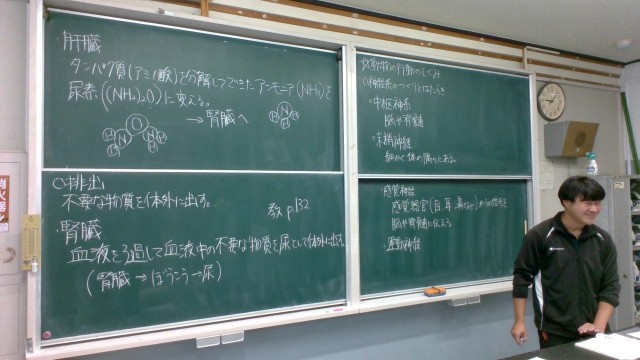 ・肝臓
タンパク質(アミノ酸)を分解してできたアンモニア(NH₃)を
尿素((NH₂)₂O)に変える。
→腎臓へ
O
N
N
H
H
H
H
N
H
H
H
○排出
不要な物質を体外に出す。
教 p132
・腎臓
血液をろ過して血液中の不要な物質を尿として体外に出す。
(腎臓→ぼうこう→尿)
動物の行動のしくみ
○神経系のつくりとはたらき
・中枢神経
脳や脊髄
・末梢神経
細かく体の隅々にある。
感覚神経
感覚器官(目、耳、鼻など)からの信号を
脳や脊髄に伝える
運動神経
消火器